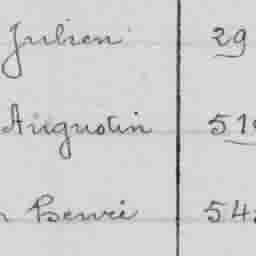 Julien 29
Augustin 51
Henri 54